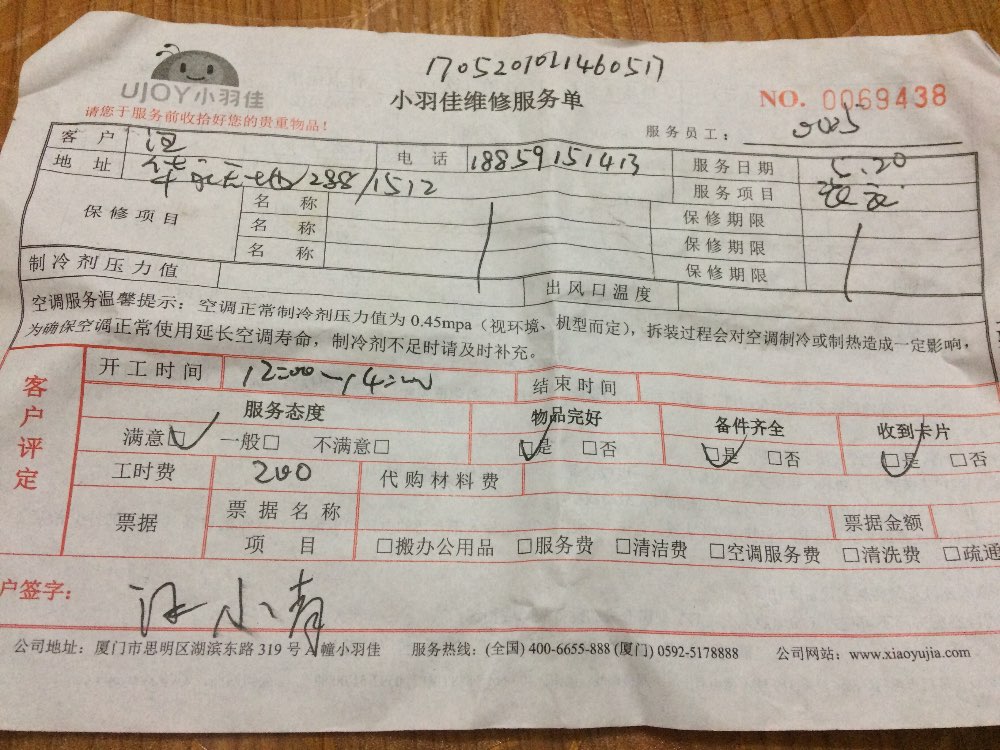 1705201011460517
UJOY小羽佳
小羽佳维修服务单
NO. 0069438
请您于服务前收拾好您的贵重物品！
服务员工：
客 户 汪 电 话 18859151413 服务日期 5.20
地 址 288/1512 服务项目
保修项目 名 称 保修期限
名 称 保修期限
名 称 保修期限
制冷剂压力值 出风口温度
空调服务温馨提示：空调正常制冷剂压力值为 0.45mpa（视环境、机型而定），拆装过程会对空调制冷或制热造成一定影响，
为确保空调正常使用延长空调寿命，制冷剂不足时请及时补充。
客户评定
开工时间 12:00-14:00 结束时间
服务态度 物品完好 备件齐全 收到卡片
满意□ 一般□ 不满意□ □是 □否 □是 □否 □是 □否
工时费 200 代购材料费
票据 票据名称 票据金额
项 目 □搬办公用品 □服务费 □清洁费 □空调服务费 □清洗费 □疏通
户签字： 汪小青
公司地址：厦门市思明区湖滨东路 319 号 A 幢小羽佳 服务热线：(全国) 400-6655-888 (厦门) 0592-5178888 公司网站：www.xiaoyujia.com